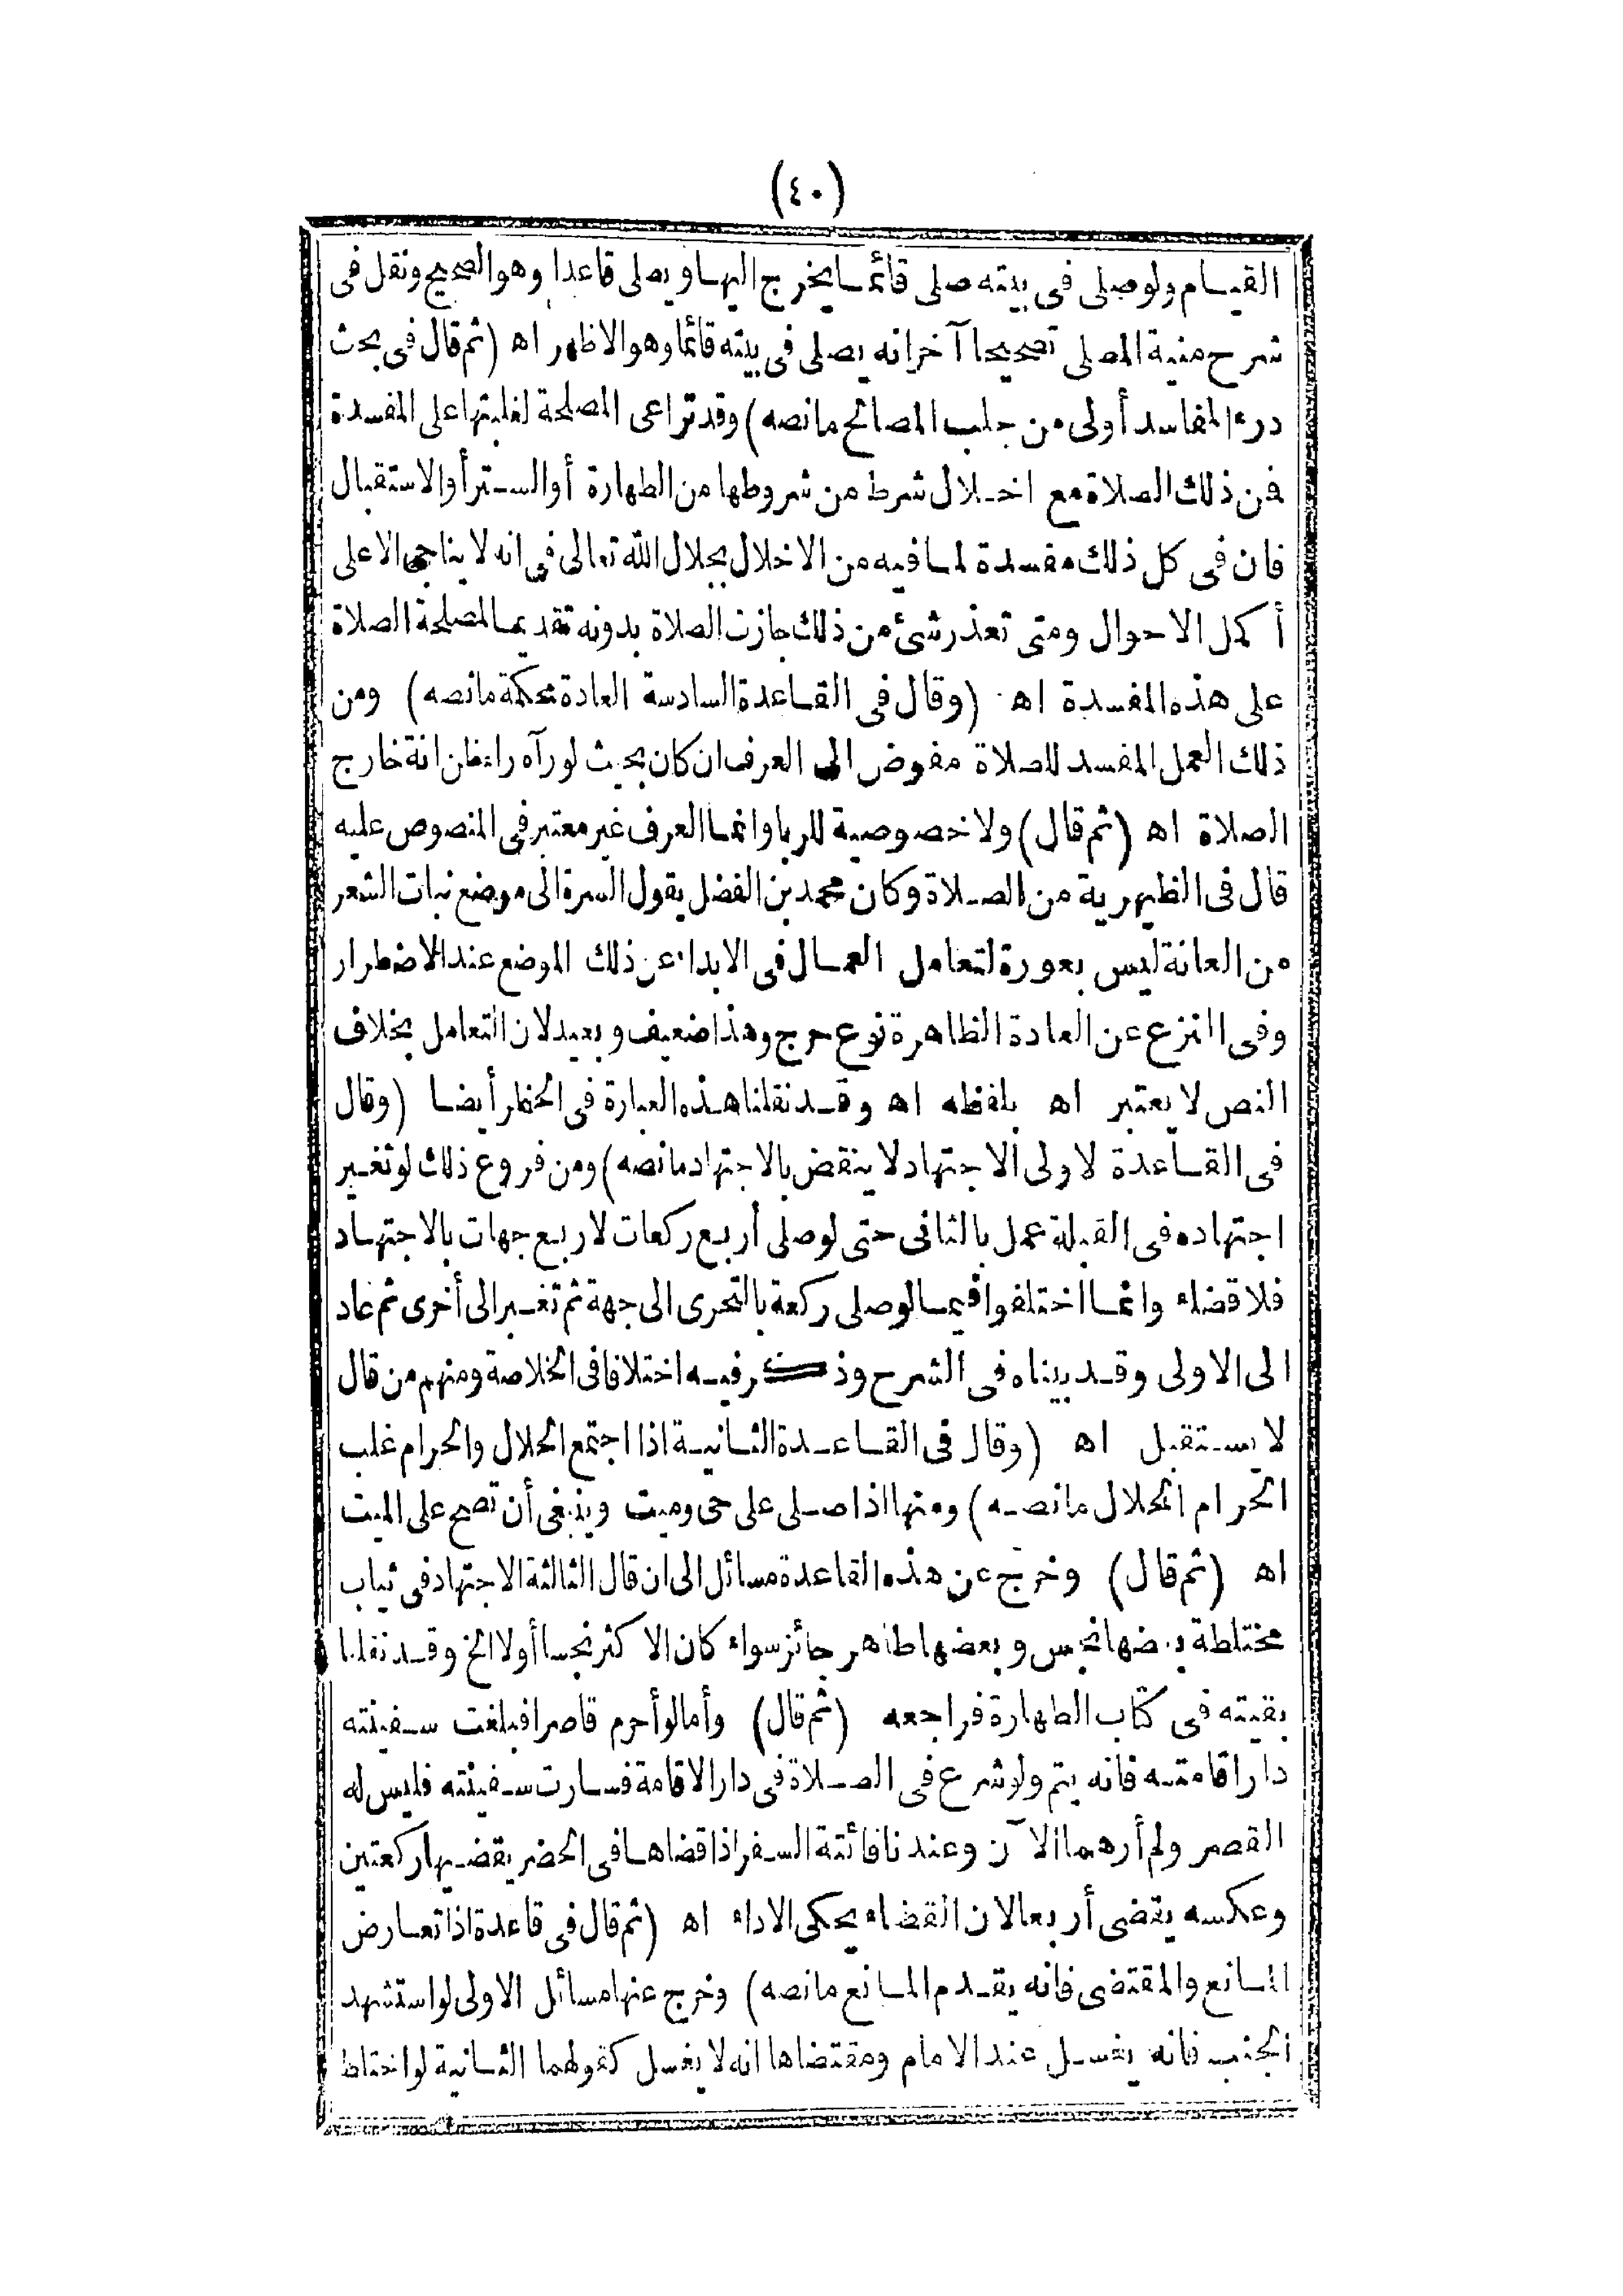 (٤٠)
القيام ولو صلى فى بيته صلى قائما يخرج اليها ويصلى قاعدا وهو الصحيح ونقل فى
شرح منية المصلى تصحيحا آخر انه يصلى فى بيته قائما وهو الاظهر اه (ثم قال فى بحث
درء المفاسد أولى من جلب المصالح مانصه) وقد تراعى المصلحة لغلبتها على المفسدة
فمن ذلك الصلاة مع اختلال شرط من شروطها من الطهارة أو الستر أو الاستقبال
فان فى كل ذلك مفسدة لما فيه من الاخلال بجلال الله تعالى فى انه لا يناجى الاعلى
أكمل الاحوال ومتى تعذر شئ من ذلك جازت الصلاة بدونه تقديما لمصلحة الصلاة
على هذه المفسدة اه (وقال فى القاعدة السادسة العادة محكمة مانصه) ومن
ذلك العمل المفسد للصلاة مفوض الى العرف ان كان بحيث لو رآه راء ظن انه خارج
الصلاة اه (ثم قال) ولا خصوصية للربا وانما العرف غير معتبر فى المنصوص عليه
قال فى الظهيرية من الصلاة وكان محمد بن الفضل يقول السرة الى موضع نبات الشعر
من العانة ليس بعورة لتعامل العمال فى الابداء عن ذلك الموضع عند الاضطرار
وفى النزع عن العادة الظاهرة نوع حرج وهذا ضعيف وبعيد لان التعامل بخلاف
النص لا يعتبر اه بلفظه اه وقد نقلنا هذه العبارة فى الحظر أيضا (وقال
فى القاعدة لاولى الاجتهاد لا ينقض بالاجتهاد مانصه) ومن فروع ذلك لو تغير
اجتهاده فى القبلة عمل بالثانى حتى لو صلى أربع ركعات لاربع جهات بالاجتهاد
فلا قضاء وانما اختلفوا فيما لو صلى ركعة بالتحرى الى جهة ثم تغير الى أخرى ثم عاد
الى الاولى وقد بيناه فى الشرح وذكر فيه اختلافا فى الخلاصة ومنهم من قال
لا يستقبل اه (وقال فى القاعدة الثانية اذا اجتمع الحلال والحرام غلب
الحرام الحلال مانصه) ومنها اذا صلى على حى وميت وينبغى أن تصح على الميت
اه (ثم قال) وخرج عن هذه القاعدة مسائل الى ان قال الثالثة الاجتهاد فى ثياب
مختلطة بعضها نجس وبعضها طاهر جائز سواء كان الاكثر نجسا أو لا الخ وقد نقلنا
بقيته فى كتاب الطهارة فراجعه (ثم قال) وأما لو أحرم قاصرا فبلغت سفينته
دار اقامته فانه يتم ولو شرع فى الصلاة فى دار الاقامة فسارت سفينته فليس له
القصر ولم أرهما الآن وعندنا فائتة السفر اذا قضاها فى الحضر يقضيها ركعتين
وعكسه يقضى أربعا لان القضاء يحكى الاداء اه (ثم قال فى قاعدة اذا تعارض
المانع والمقتضى فانه يقدم المانع مانصه) وخرج عنها مسائل الاولى لو استشهد
الجنب فانه يغسل عند الامام ومقتضاها انه لا يغسل كقولهما الثانية لو اختلط